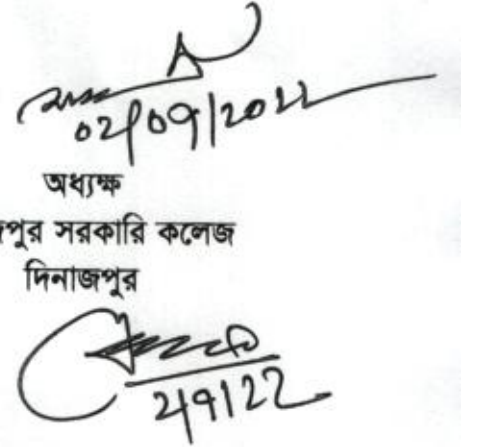 02/09/2022
অধ্যক্ষ
জপুর সরকারি কলেজ
দিনাজপুর
2/9/22